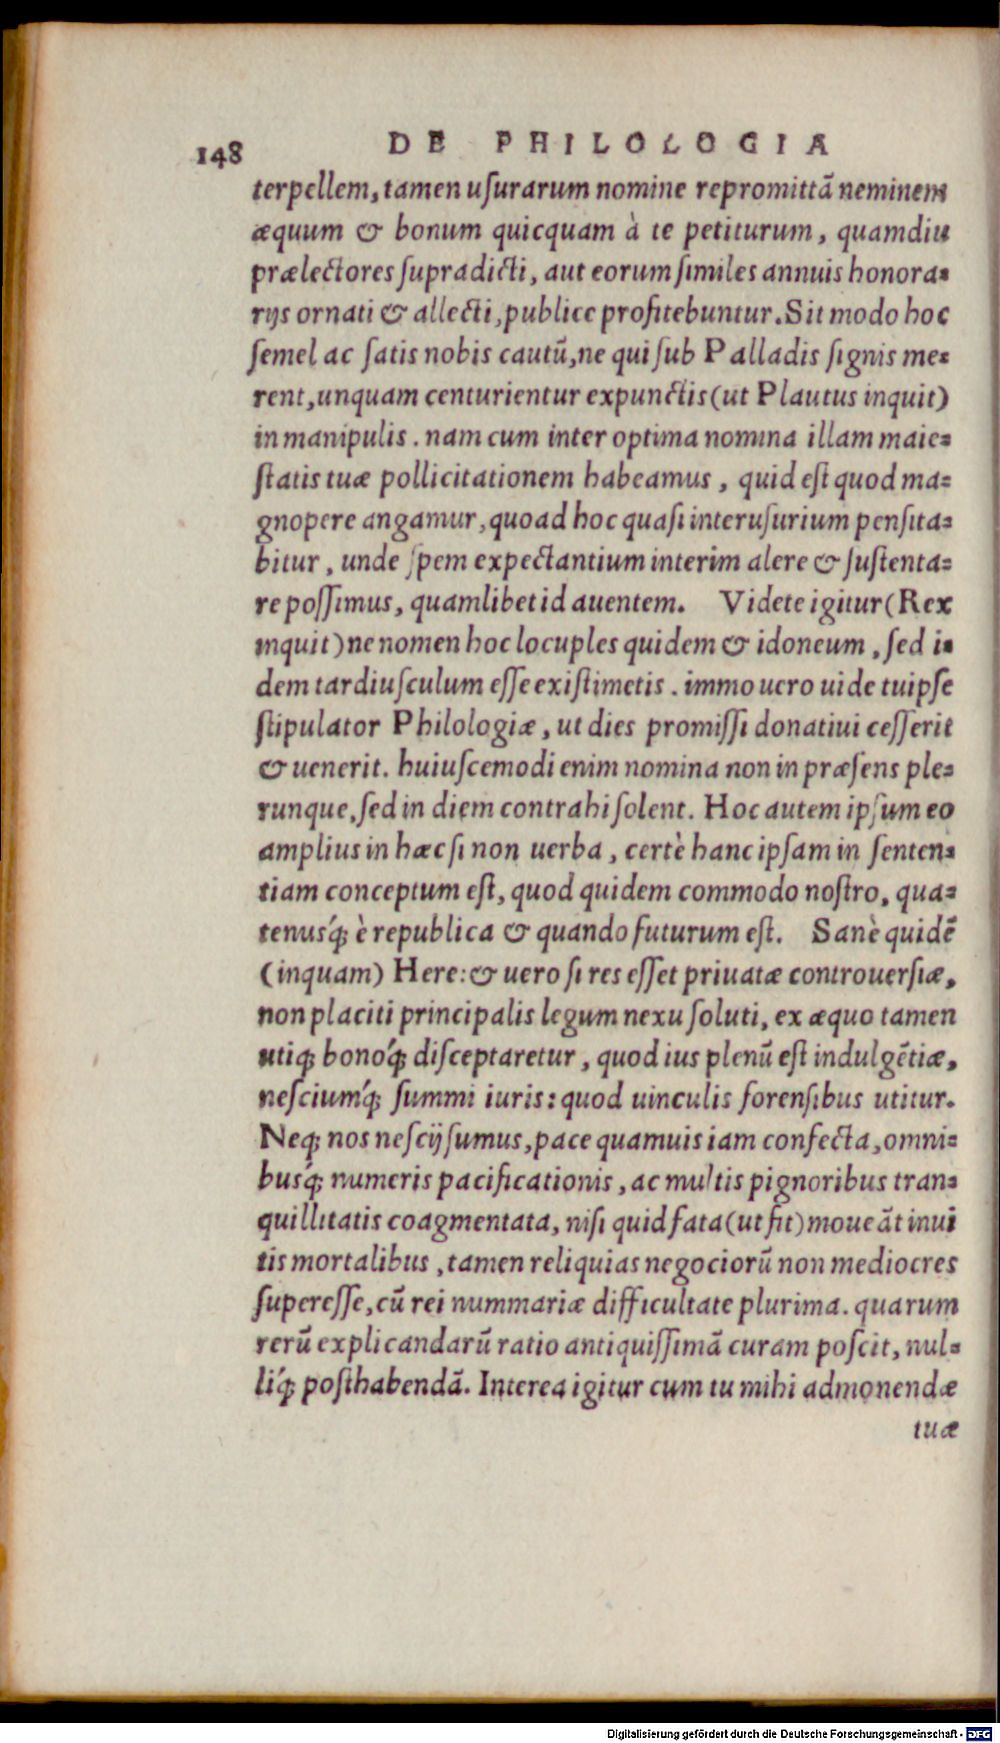 148 DE PHILOLOGIA
terpellem, tamen usurarum nomine repromittā neminem
æquum & bonum quicquam à te petiturum, quamdiu
prælectores supradicti, aut eorum similes annuis honora=
rijs ornati & allecti, publice profitebuntur. Sit modo hoc
semel ac satis nobis cautū, ne qui sub Palladis signis me=
rent, unquam centurientur expunctis (ut Plautus inquit)
in manipulis. nam cum inter optima nomina illam maie=
statis tuæ pollicitationem habeamus, quid est quod ma=
gnopere angamur, quoad hoc quasi interusurium pensita=
bitur, unde spem expectantium interim alere & sustenta=
re possimus, quamlibet id auentem. Videte igitur (Rex
inquit) ne nomen hoc locuples quidem & idoneum, sed i=
dem tardiusculum esse existimetis. immo uero uide tuipse
stipulator Philologiæ, ut dies promissi donatiui cesserit
& uenerit. huiuscemodi enim nomina non in præsens ple=
runque, sed in diem contrahi solent. Hoc autem ipsum eo
amplius in hæc si non uerba, certè hanc ipsam in senten=
tiam conceptum est, quod quidem commodo nostro, qua=
tenusq́; è republica & quando futurum est. Sanè quidē
(inquam) Here: & uero si res esset priuatæ controuersiæ,
non placiti principalis legum nexu soluti, ex æquo tamen
utiq; bonoq́; disceptaretur, quod ius plenū est indulgētiæ,
nesciumq́; summi iuris: quod uinculis forensibus utitur.
Neq; nos nescij sumus, pace quamuis iam confecta, omni=
busq́; numeris pacificationis, ac multis pignoribus tran=
quillitatis coagmentata, nisi quid fata (ut fit) moueāt inui
tis mortalibus, tamen reliquias negociorū non mediocres
superesse, cū rei nummariæ difficultate plurima. quarum
rerū explicandarū ratio antiquissimā curam poscit, nul=
liq́; posthabendā. Interea igitur cum tu mihi admonendæ
tuæ
Digitalisierung gefördert durch die Deutsche Forschungsgemeinschaft - DFG